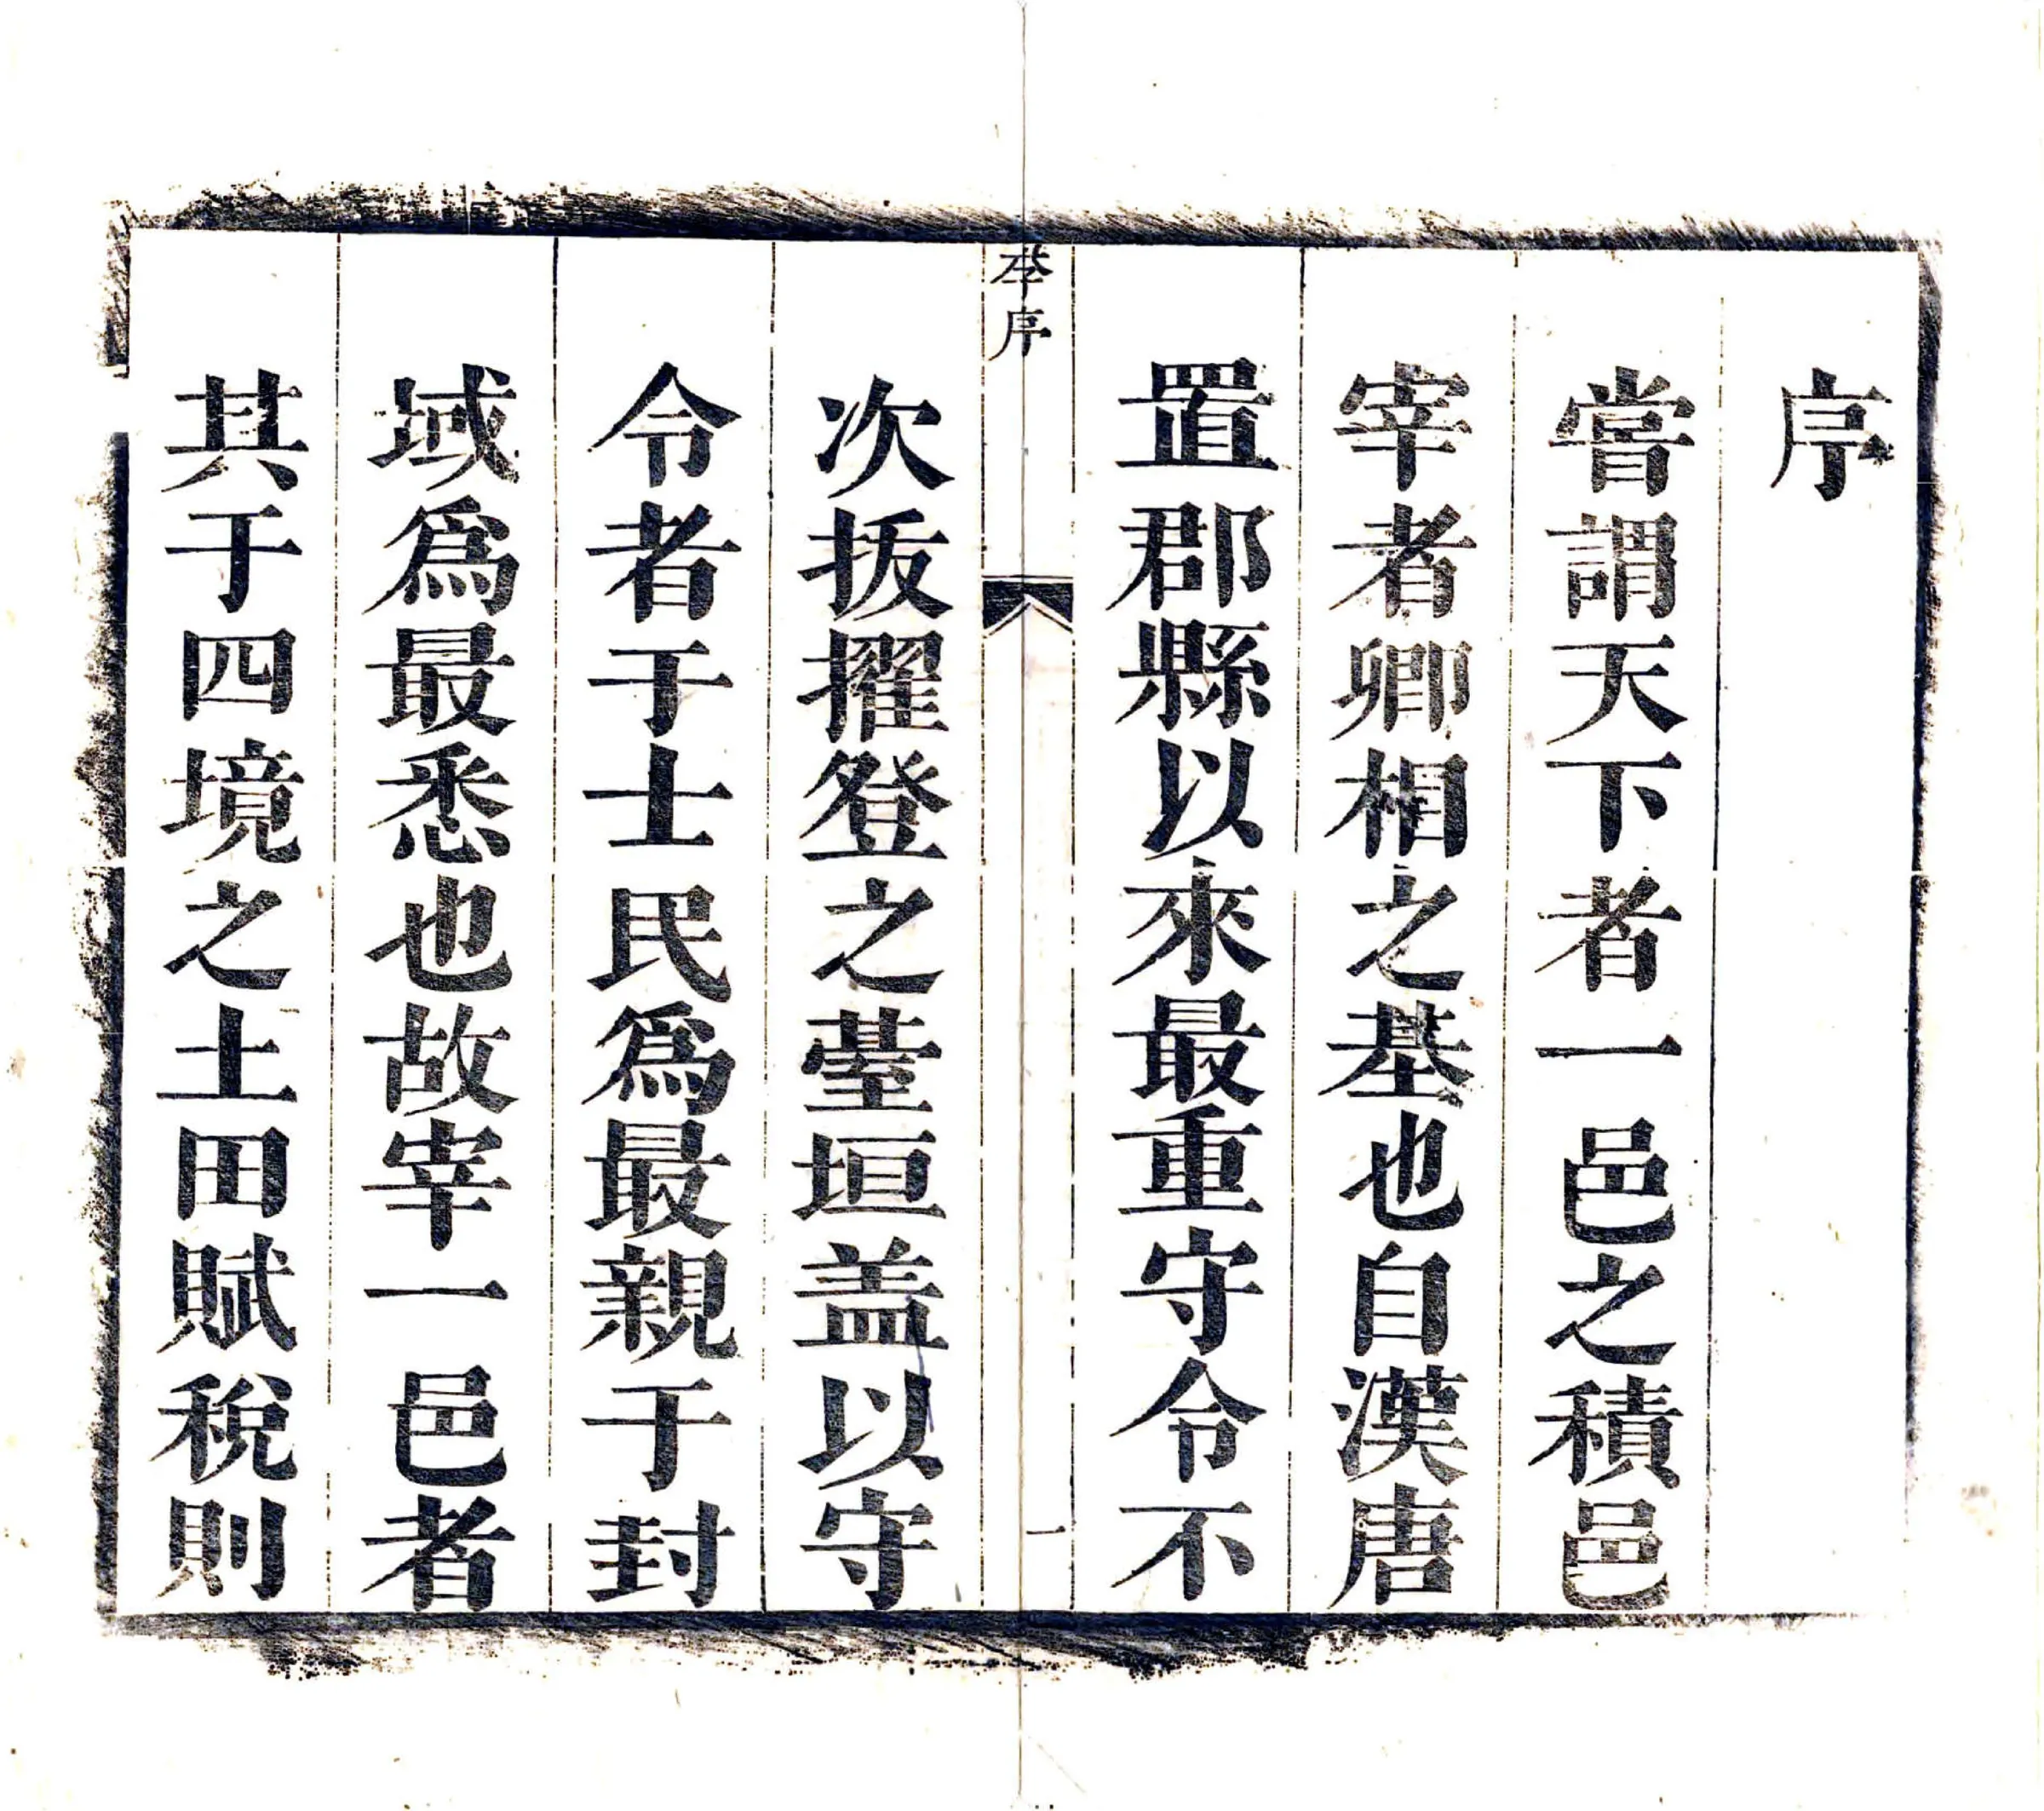 序
嘗謂天下者一邑之積邑
宰者卿相之基也自漢唐
置郡縣以來最重守令不
李序
一
次拔擢登之䑓垣盖以守
令者于士民爲最親于封
域爲最悉也故宰一邑者
其于四境之土田賦稅則